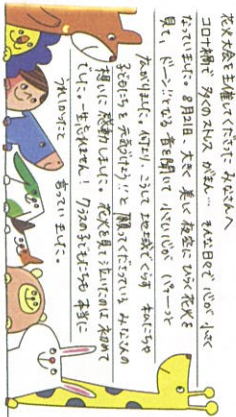 花火大会を主催してくださった みなさんへ
コロナ禍で 多くのストレス がまん… そんな日々で 心が 小さく
なっていました。8月21日、大きく 美しく 夜空に ひらく花火を
見て、ドーン!!となる音を聞いて 小さい心が パァーっと
広がりました。何より、こうして 地域でくらす 私たちや
子どもたちを 元気づけよう!!と 願ってくださっている みなさんの
想いに 感動しました。花火を見て 泣いたのは 初めて
でした。一生忘れません! クラスの子どもたちも 本当に
うれしかったと 言っていました。